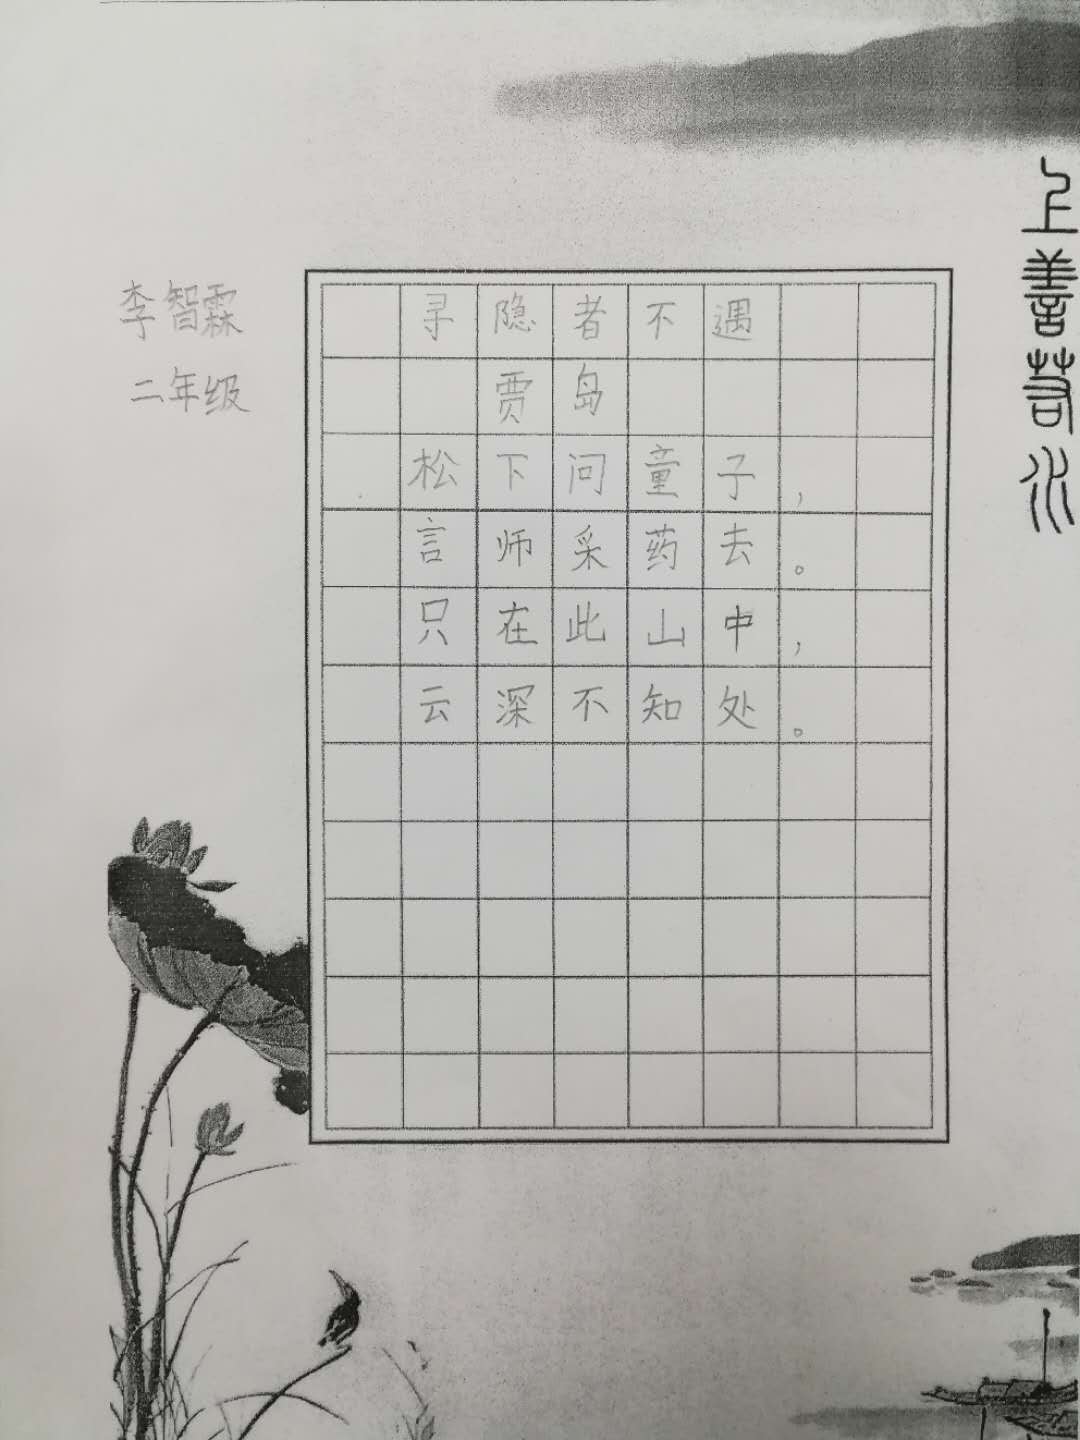 上善若水
李智霖
二年级
寻隐者不遇
贾岛
松下问童子，
言师采药去。
只在此山中，
云深不知处。